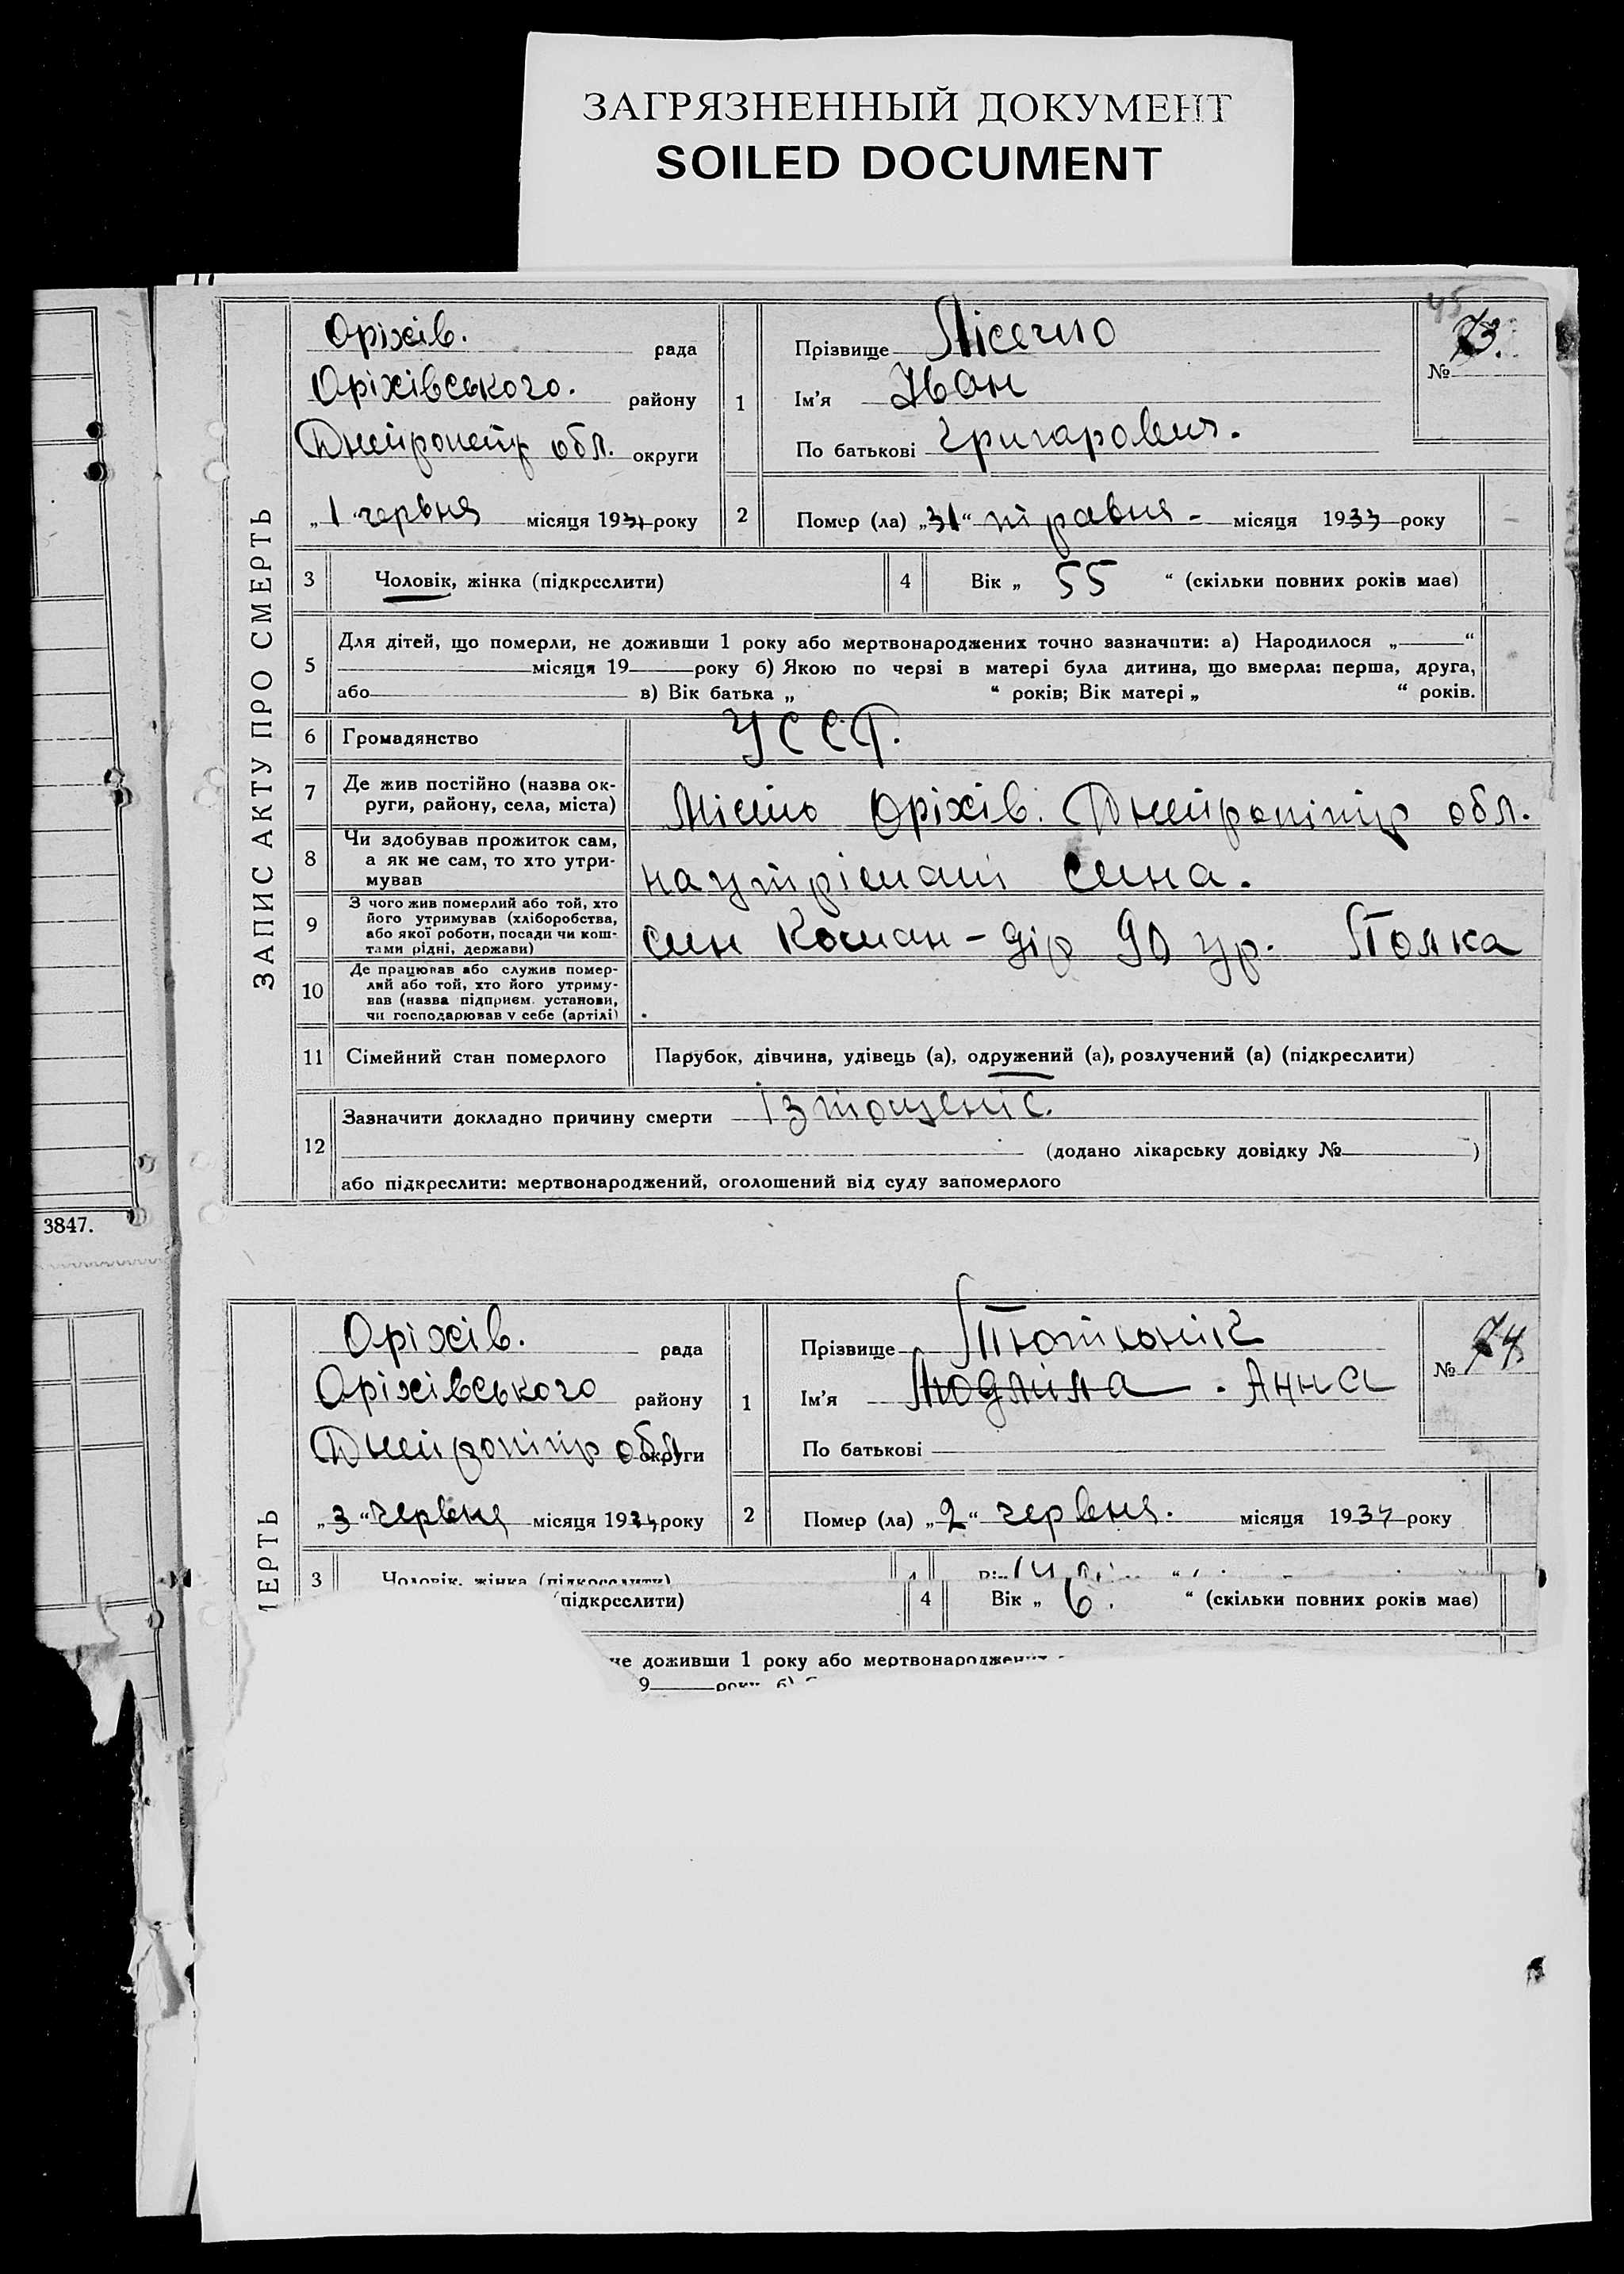 ЗАГРЯЗНЕННЫЙ ДОКУМЕНТ
SOILED DOCUMENT
ЗАПИС АКТУ ПРО СМЕРТЬ
Оріхів. рада
Оріхівського. району
обл. округи
„1“ червня місяця 193 року
1
Прізвище
Ім'я Іван
По батькові
№ 73.
2
Помер (ла) „31“ травня - місяця 1933 року
3 Чоловік, жінка (підкреслити)
4 Вік „ 55 “ (скільки повних років має)
5
Для дітей, що померли, не доживши 1 року або мертвонароджених точно зазначити: а) Народилося „ “
місяця 19 року б) Якою по черзі в матері була дитина, що вмерла: перша, друга,
або в) Вік батька „ “ років; Вік матері „ “ років.
6 Громадянство УССР.
7 Де жив постійно (назва ок-
руги, району, села, міста)
Місто Оріхів. обл.
8 Чи здобував прожиток сам,
а як не сам, то хто утри-
мував
сина.
9 З чого жив померлий або той, хто
його утримував (хліборобства,
або якої роботи, посади чи кош-
тами рідні, держави)
син Коман-дір 90 Полка
10 Де працював або служив помер-
лий або той, хто його утриму-
вав (назва підприєм. установи,
чи господарював у себе (артілі)
11 Сімейний стан померлого
Парубок, дівчина, удівець (а), одружений (а), розлучений (а) (підкреслити)
12
Зазначити докладно причину смерти
(додано лікарську довідку № )
або підкреслити: мертвонароджений, оголошений від суду запомерлого
3847.
МЕРТЬ
Оріхів. рада
Оріхівського району
обл округи
„3“ червня місяця 193 року
1
Прізвище
Ім'я Анна
По батькові
№ 74
2
Помер (ла) „2“ червня. місяця 193 року
3 Чоловік, жінка (підкреслити)
підкреслити)
4 Вік „ 6. “ (скільки повних років має)
не доживши 1 року або мертвонароджених
9 року б)